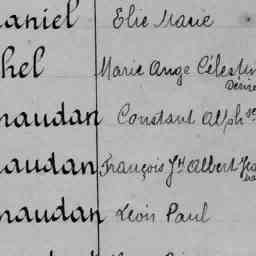 aniel Elie Marie
hel Marie Ange Célestin
Désiré
naudan Constant Alphse
naudan François Jh Albert Jea
naudan Léon Paul